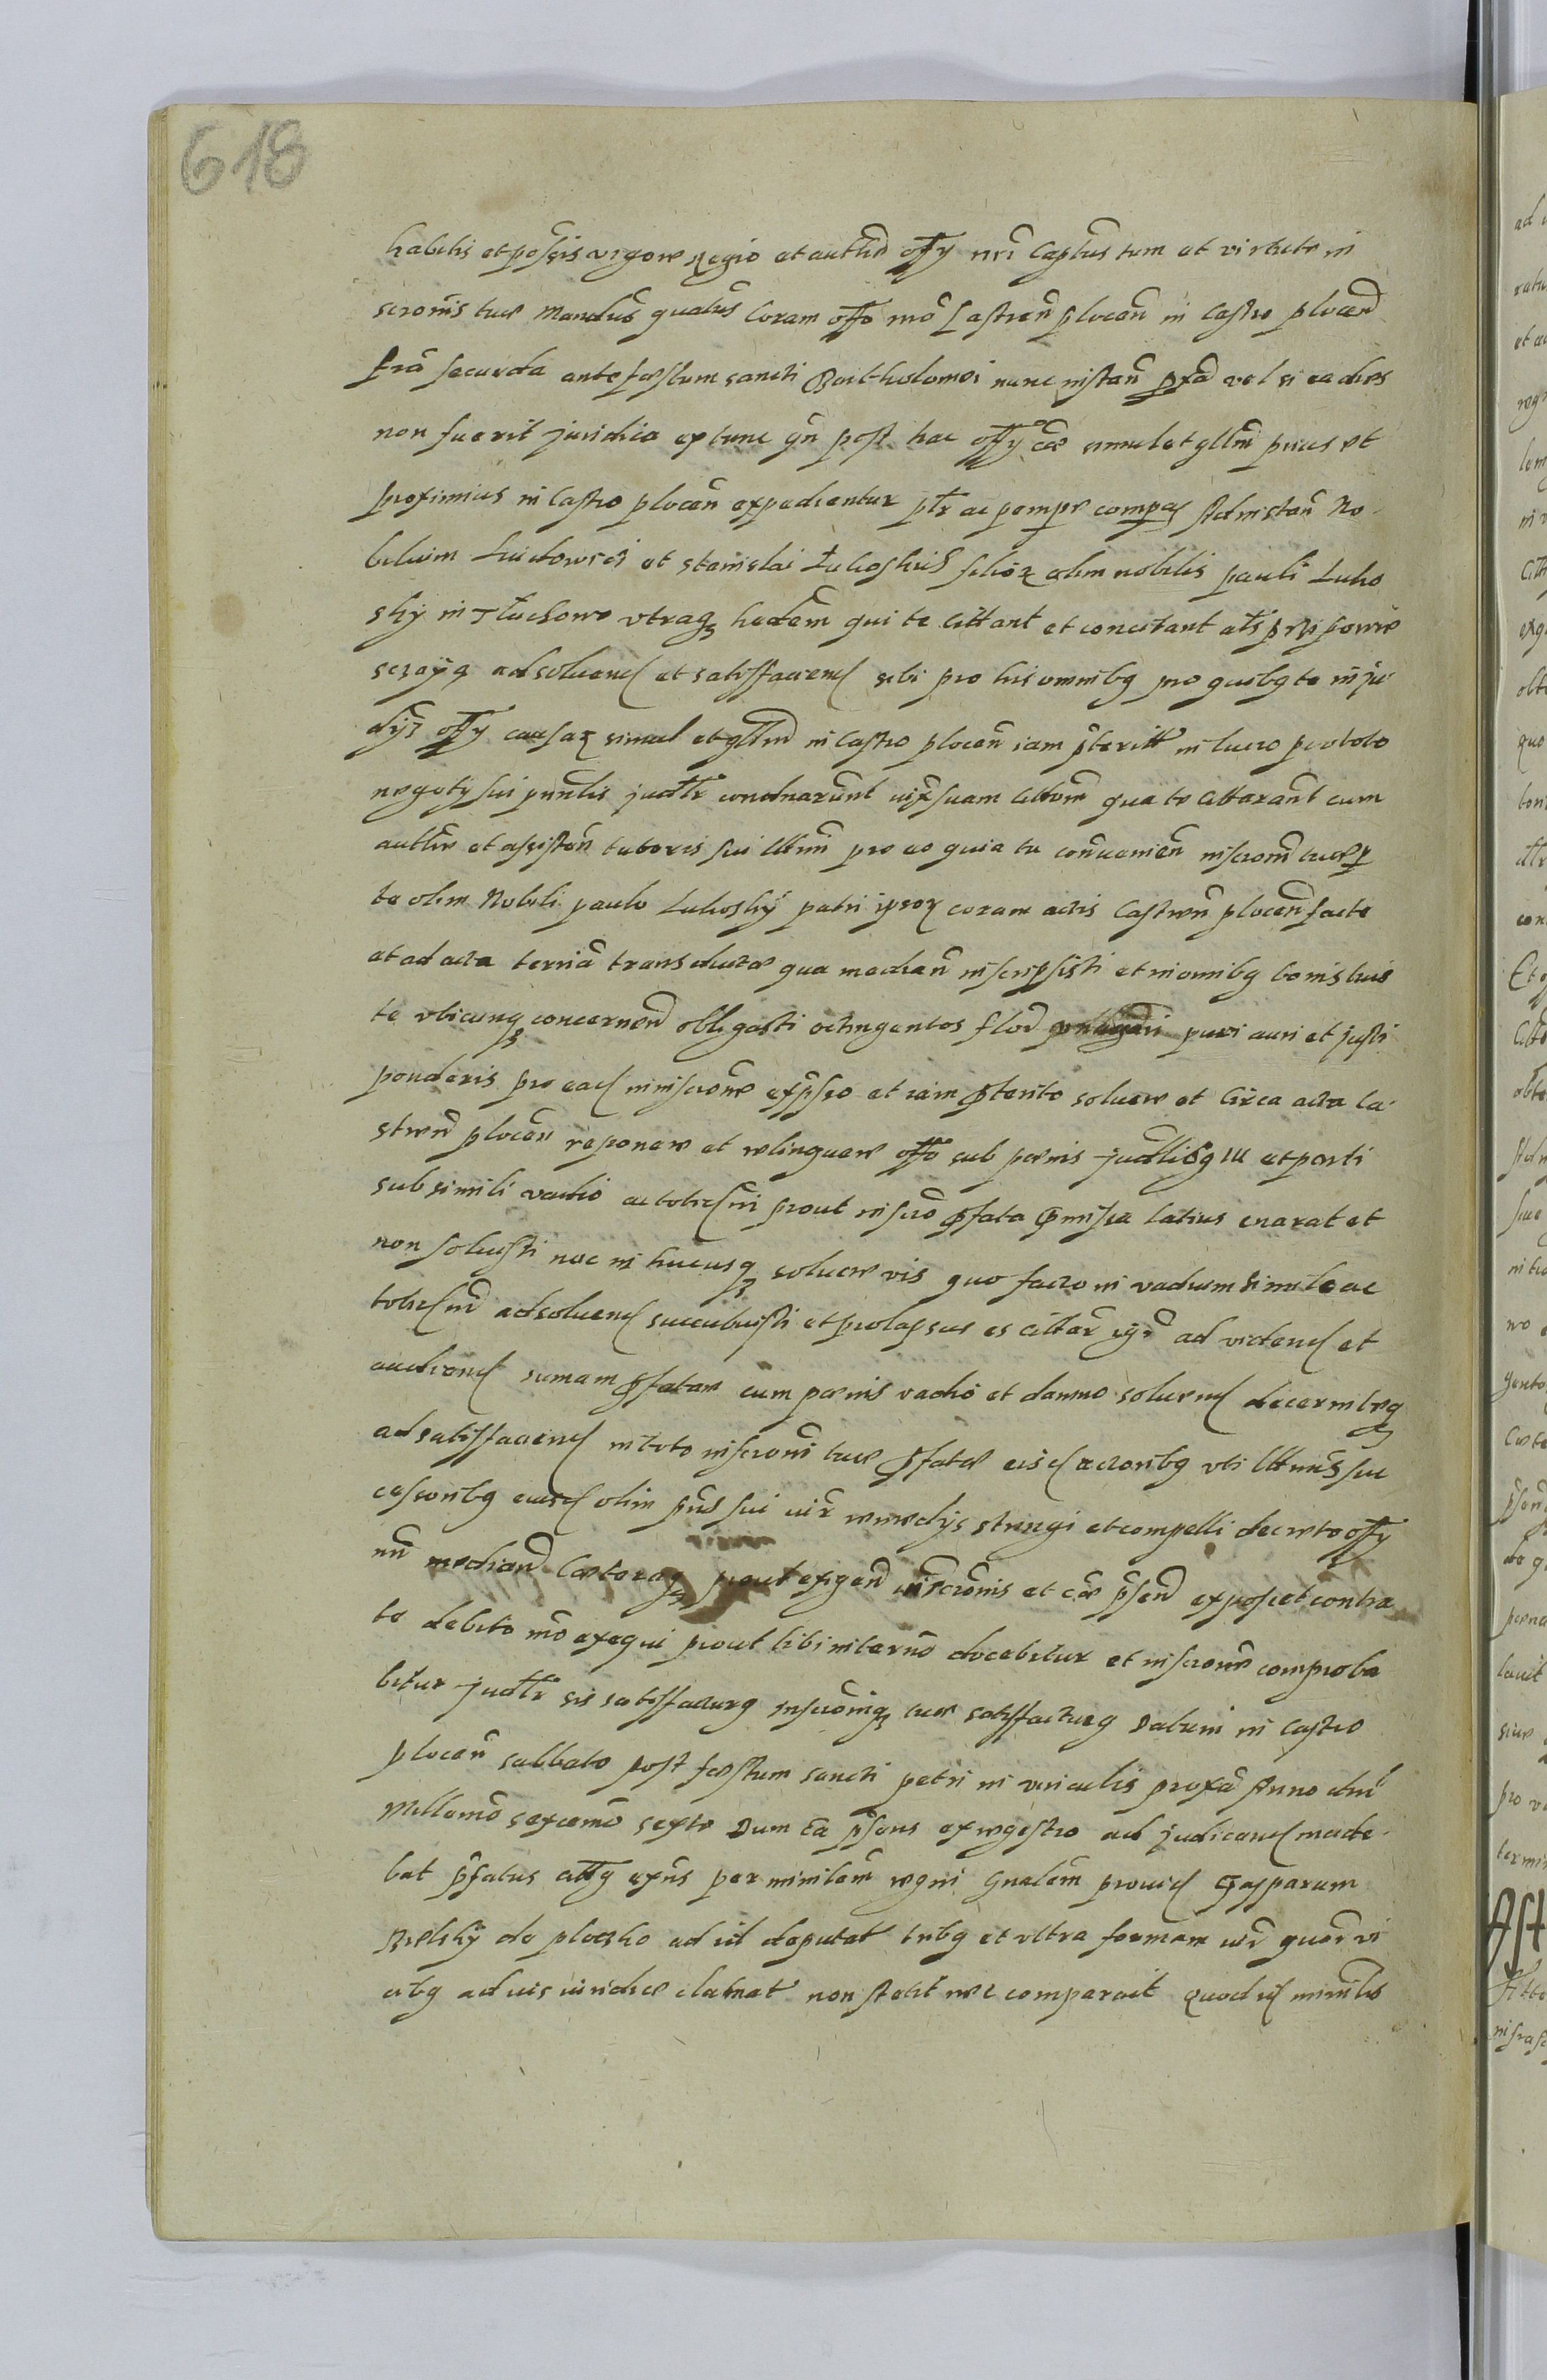 618
habitis et possis vigore Regio et autthe offy nri Captus tum et virtute in
scronis tuae Mandus quatus Coram offo nro Castren plocen in Castro plocen
fria secunda ante festum sancti Bartholomei nunc instan pxa vel si ea dies
non fuerit juridica extunc qn post hac offy cae simul et gllm prius et
proximius in Castro plocen expedientur ptr ac pempe compas Ad instan No
bilium et Stanislai filior olim nobilis pauli Luko
sky in Tluchowo vtraq hedem qui te cittant et concitant
adsoluend et satisffaciend sibi pro his omnibq pro quibq te in ju
dijs offy causar simul et gllm in Castro plocen iam pteritt in lucro pro toto
negoty sui pnntis judtr condnarunt iux suam cittom qua te cittarant cum
autthe et assisten tutoris sui littmi pro eo quia tu conuenien inscroni tuae p
te olim Nobili paulo Lukosky patri ipsor coram actis Castren plocen facte
et ad acta terria transducte qua median inscripsisti et in omnibq bonis tuis
te vbicunq concernen obligasti octingentos flor puri auri et justi
ponderis pro ead in inscrone expsso et iam pterito soluere et Circa acta Ca
stren plocen reponere et relinquere offo sub poenis judtlibq III et parti
sub simili vadio ac totid m prout inscro pfata pmissa latius enarat et
non soluisti nec in hucusq soluere vis quo facto in vadium simile ac
totid m adsoluend succubuisti et prolapsus es cittar ad vidend et
audiend sumam pfatam cum poenis vadio et damno soluend decerni teq
ad satisffaciend in toto inscroni tuae pfatae eisd actoribq vti littmis suc
cessoribq eiusd olim pris sui iur remedys stringi et compelli decreto offy
nri median Caeteraq prout exigen inscronis et cae psen exposcet contra
te debito mo exequi prout tibi in termo docebitur et inscrone comproba
bitur judtr sis satisffacturq inscroniq tuae satisffacturq Datum in Castro
plocen sabbato post festum sancti petri in vinculis proxa Anno dni
Millemo sexcemo sexto Dum ca psens ex regestro ad judicand inade
bat pfatus cittq exns per minilem regni Gnalem prouid Gasparum
Bielsky de plocsko ad id deputat tribq et vltra formam iur quor vi
cibq ad ius iuridice clamat non stetit nec comparuit quod id minilis